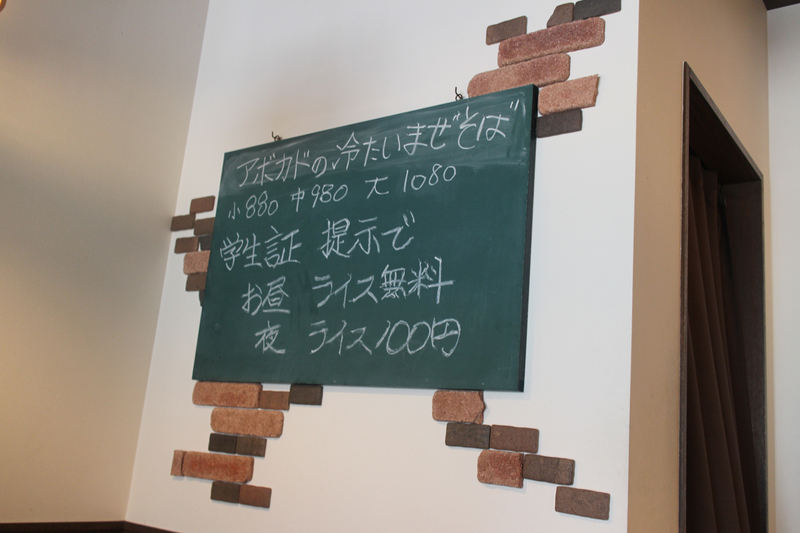 アボカドの冷たいまぜそば
小880 中980 大1080
学生証 提示で
お昼 ライス無料
夜 ライス100円